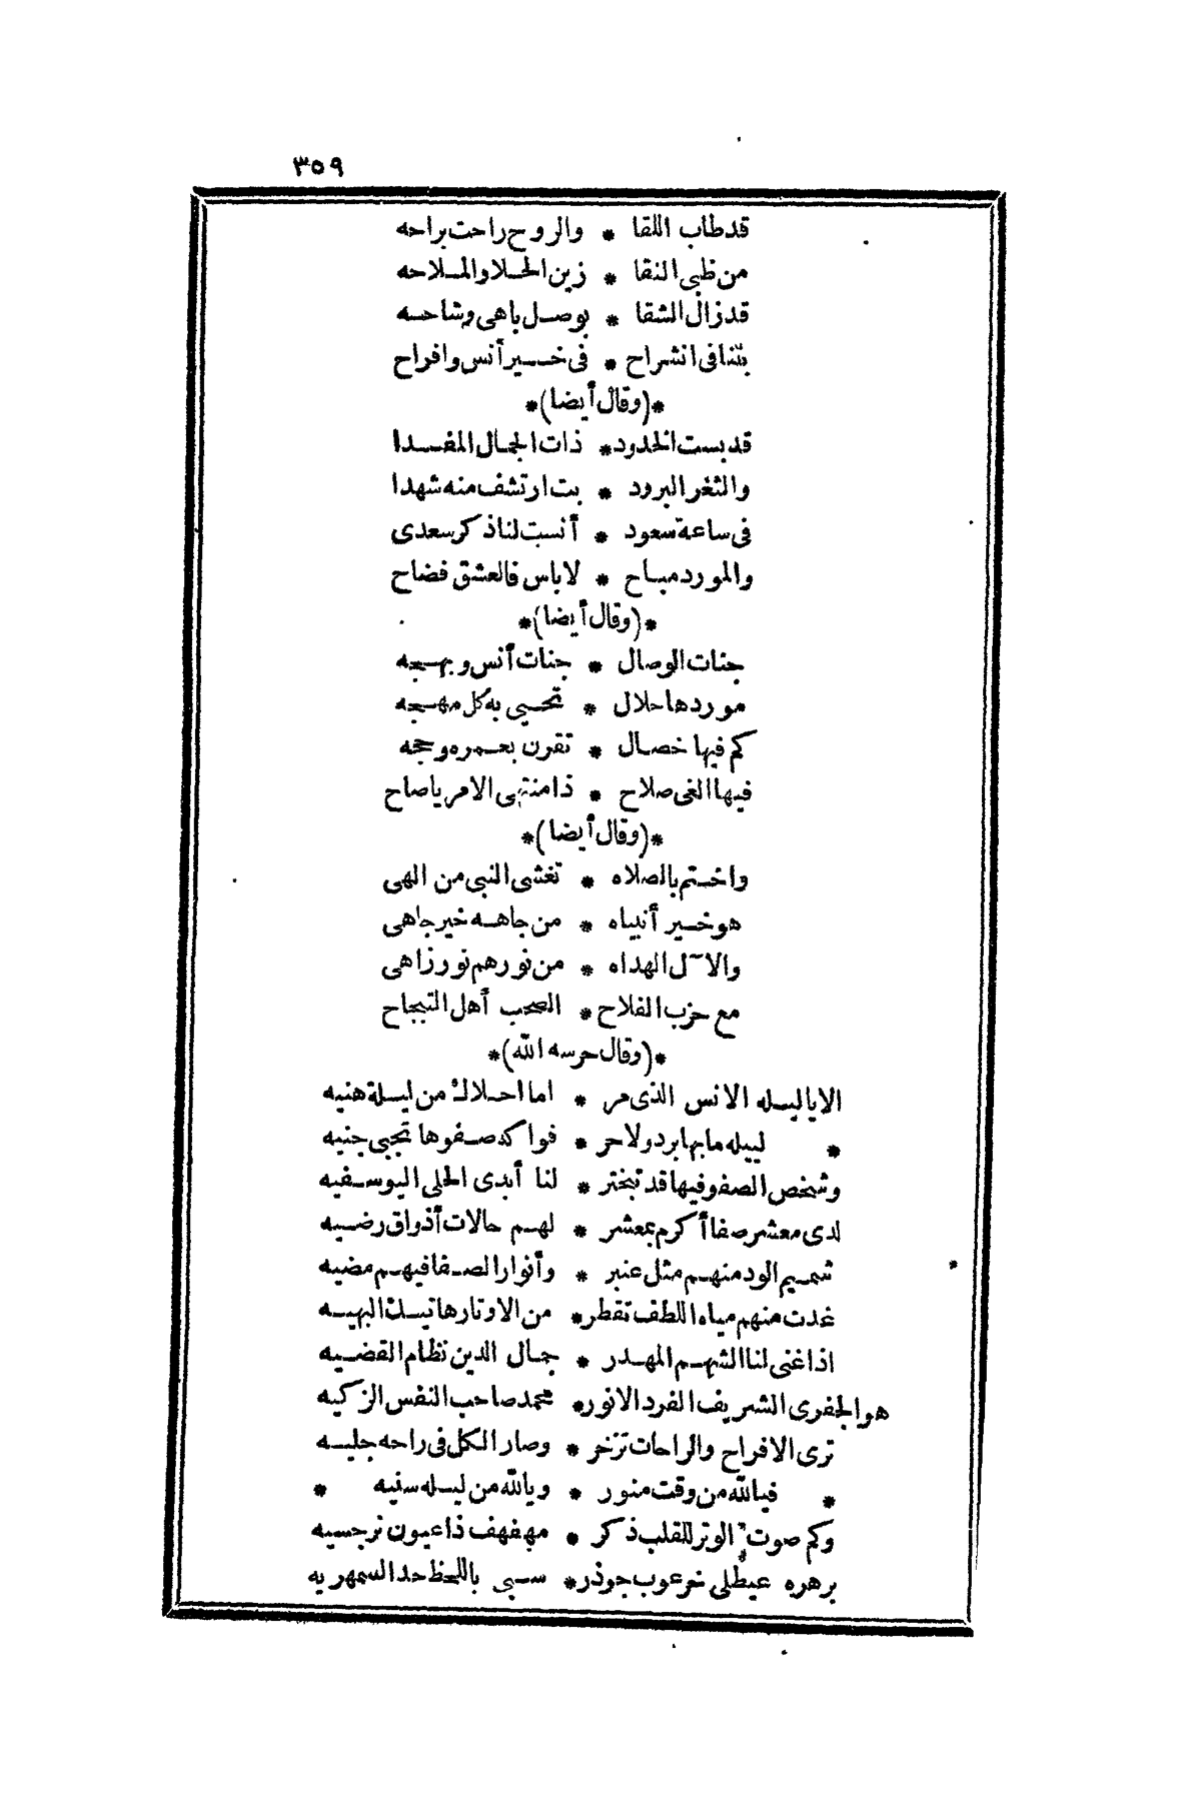 ٣٥٩
قد طاب اللقا * والروح راحت براحه
من ظبى النقا * زين الحلا والملاحه
قد زال الشقا * بوصل باهى وشاحه
بتنا فى انشراح * فى خير أنس وافراح
*(وقال أيضا)*
قد بست الخدود * ذات الجمال المفدا
والثغر البرود * بت ارتشف منه شهدا
فى ساعة سعود * أنست لنا ذكر سعدى
والمورد مباح * لا باس فالعشق فضاح
*(وقال أيضا)*
جنات الوصال * جنات أنس وبهجه
موردها حلال * تحيى به كل مهجه
كم فيها خصال * تقرن بعمره وحجه
فيها الغى صلاح * ذا منتهى الامر يا صاح
*(وقال أيضا)*
واختم بالصلاه * تغشى النبى من الهى
هو خير أنبياه * من جاهه خير جاهى
والآل الهداه * من نورهم نور زاهى
مع حزب الفلاح * الصحب أهل النجاح
*(وقال حرسه الله)*
الا يا ليله الانس الذى مر * اما احلاك من ليلة هنيه
* لييله ما بها برد ولا حر * فواكه صفوها تجبى جنيه
وشخص الصفو فيها قد تبختر * لنا أبدى الحلى اليوسفيه
لدى معشر صفا أكرم بمعشر * لهم حالات أذواق رضيه
شميم الود منهم مثل عنبر * وأنوار الصفا فيهم مضيه
غدت منهم مياه اللطف تقطر * من الاوتار هاتيك البهيه
اذا غنى لنا الشهم المهدر * جمال الدين نظام القضيه
هو الجفرى الشريف الفرد الانور * محمد صاحب النفس الزكيه
ترى الافراح والراحات تزخر * وصار الكل فى راحه جليه
* فيالله من وقت منور * ويالله من ليله سنيه *
وكم صوت الوتر للقلب ذكر * مهفهف ذا عيون نرجسيه
برهره عيطلى خرعوب جوذر * سبى باللحظ حد السمهريه